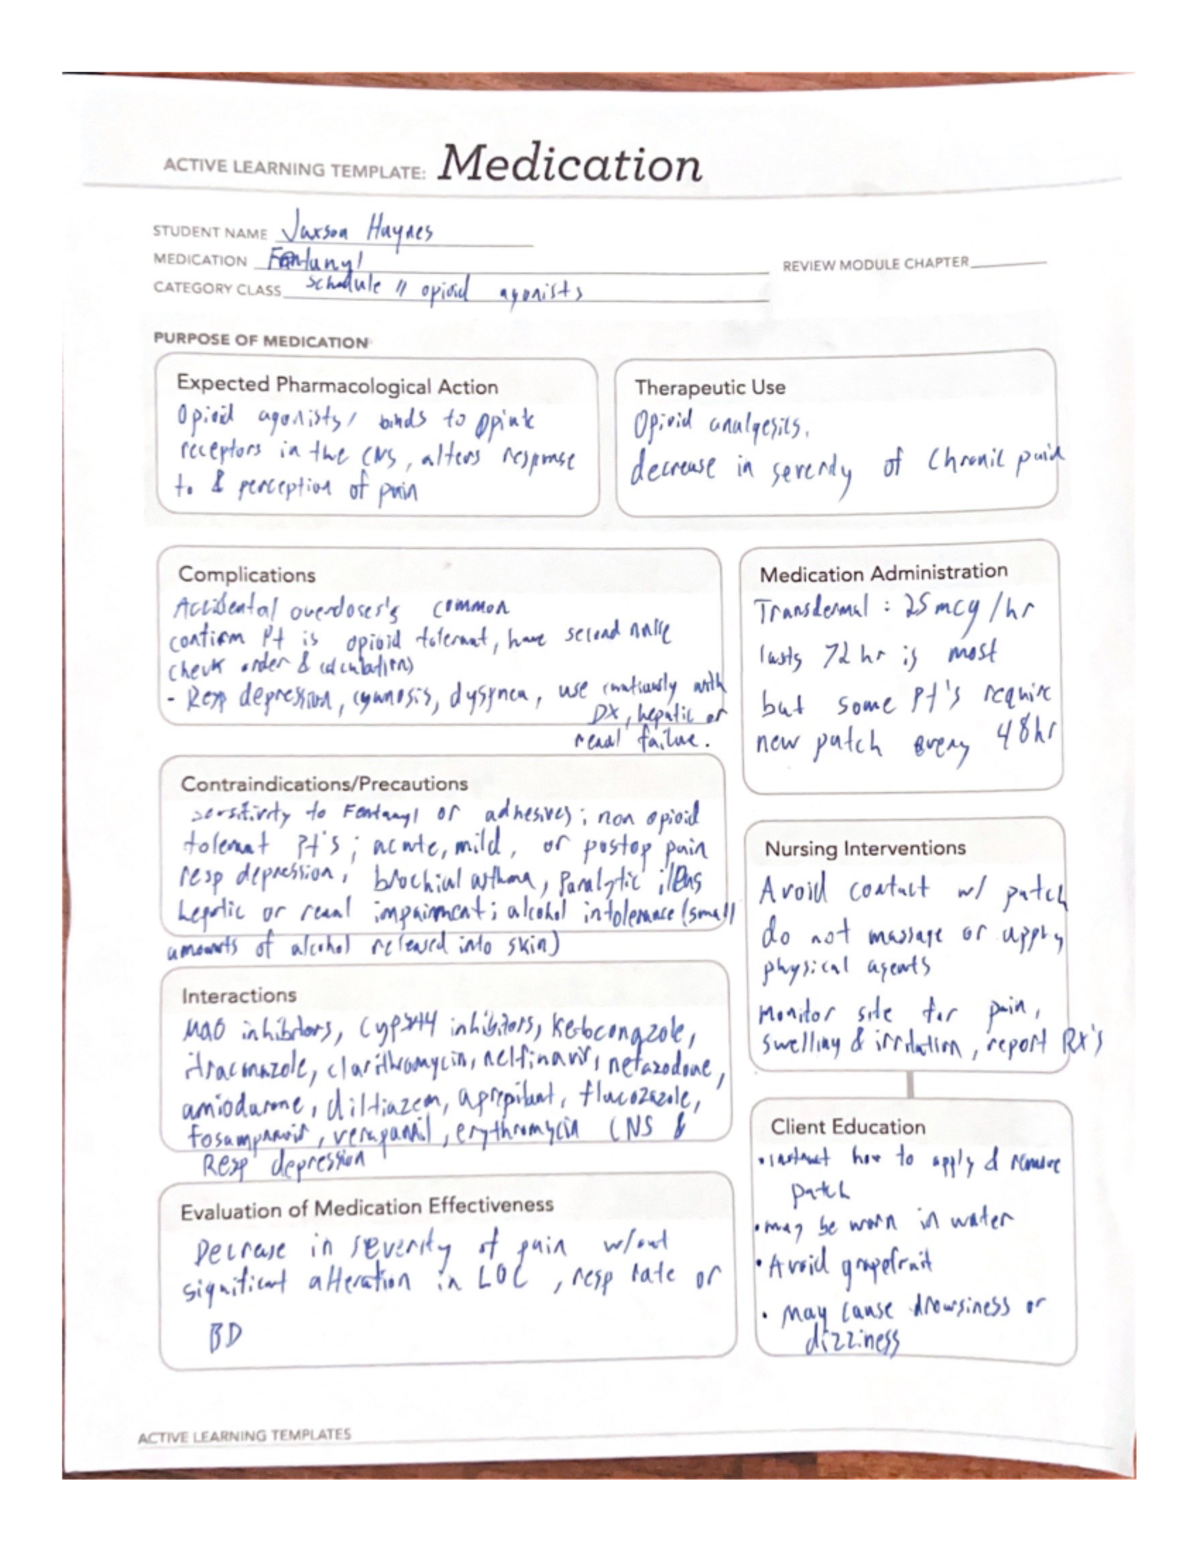 ACTIVE LEARNING TEMPLATE: Medication
STUDENT NAME Jaxson Haynes
MEDICATION Fentanyl
REVIEW MODULE CHAPTER
CATEGORY CLASS schedule II opioid agonists
PURPOSE OF MEDICATION
Expected Pharmacological Action
Opioid agonists/ binds to opiate
receptors in the CNS, alters response
to & perception of pain
Therapeutic Use
Opioid analgesics.
decrease in severity of Chronic pain
Complications
Accidental overdoses's common
confirm Pt is opioid tolerant, have second nurse
check order & calculations
- Resp depression, cyanosis, dyspnea, use cautiously with
DX, hepatic or
renal failure.
Medication Administration
Transdermal : 25 mcg/hr
lasts 72 hr is most
but some Pt's require
new patch every 48hr
Contraindications/Precautions
sensitivity to Fentanyl or adhesives; non opioid
tolerant Pt's; acute, mild, or postop pain
resp depression, brochial asthma, Paralytic illeus
hepatic or renal impairment; alcohol intolerance (small
amounts of alcohol released into skin)
Nursing Interventions
Avoid contact w/ patch
do not massage or apply
physical agents
Monitor site for pain,
swelling & irritation, report RX's
Interactions
MAO inhibitors, CYP3A4 inhibitors, Ketoconazole,
itraconazole, clarithromycin, nelfinavir, nefazodone,
amiodarone, diltiazem, aprepitant, flucozazole,
fosamprenavir, verapamil, erythromycin CNS &
Resp depression
Client Education
• instruct how to apply & remove
patch
• may be worn in water
• Avoid grapefruit
• May cause drowsiness or
dizziness
Evaluation of Medication Effectiveness
Decrease in severity of pain w/out
significant alteration in LOC, resp rate or
BD
ACTIVE LEARNING TEMPLATES